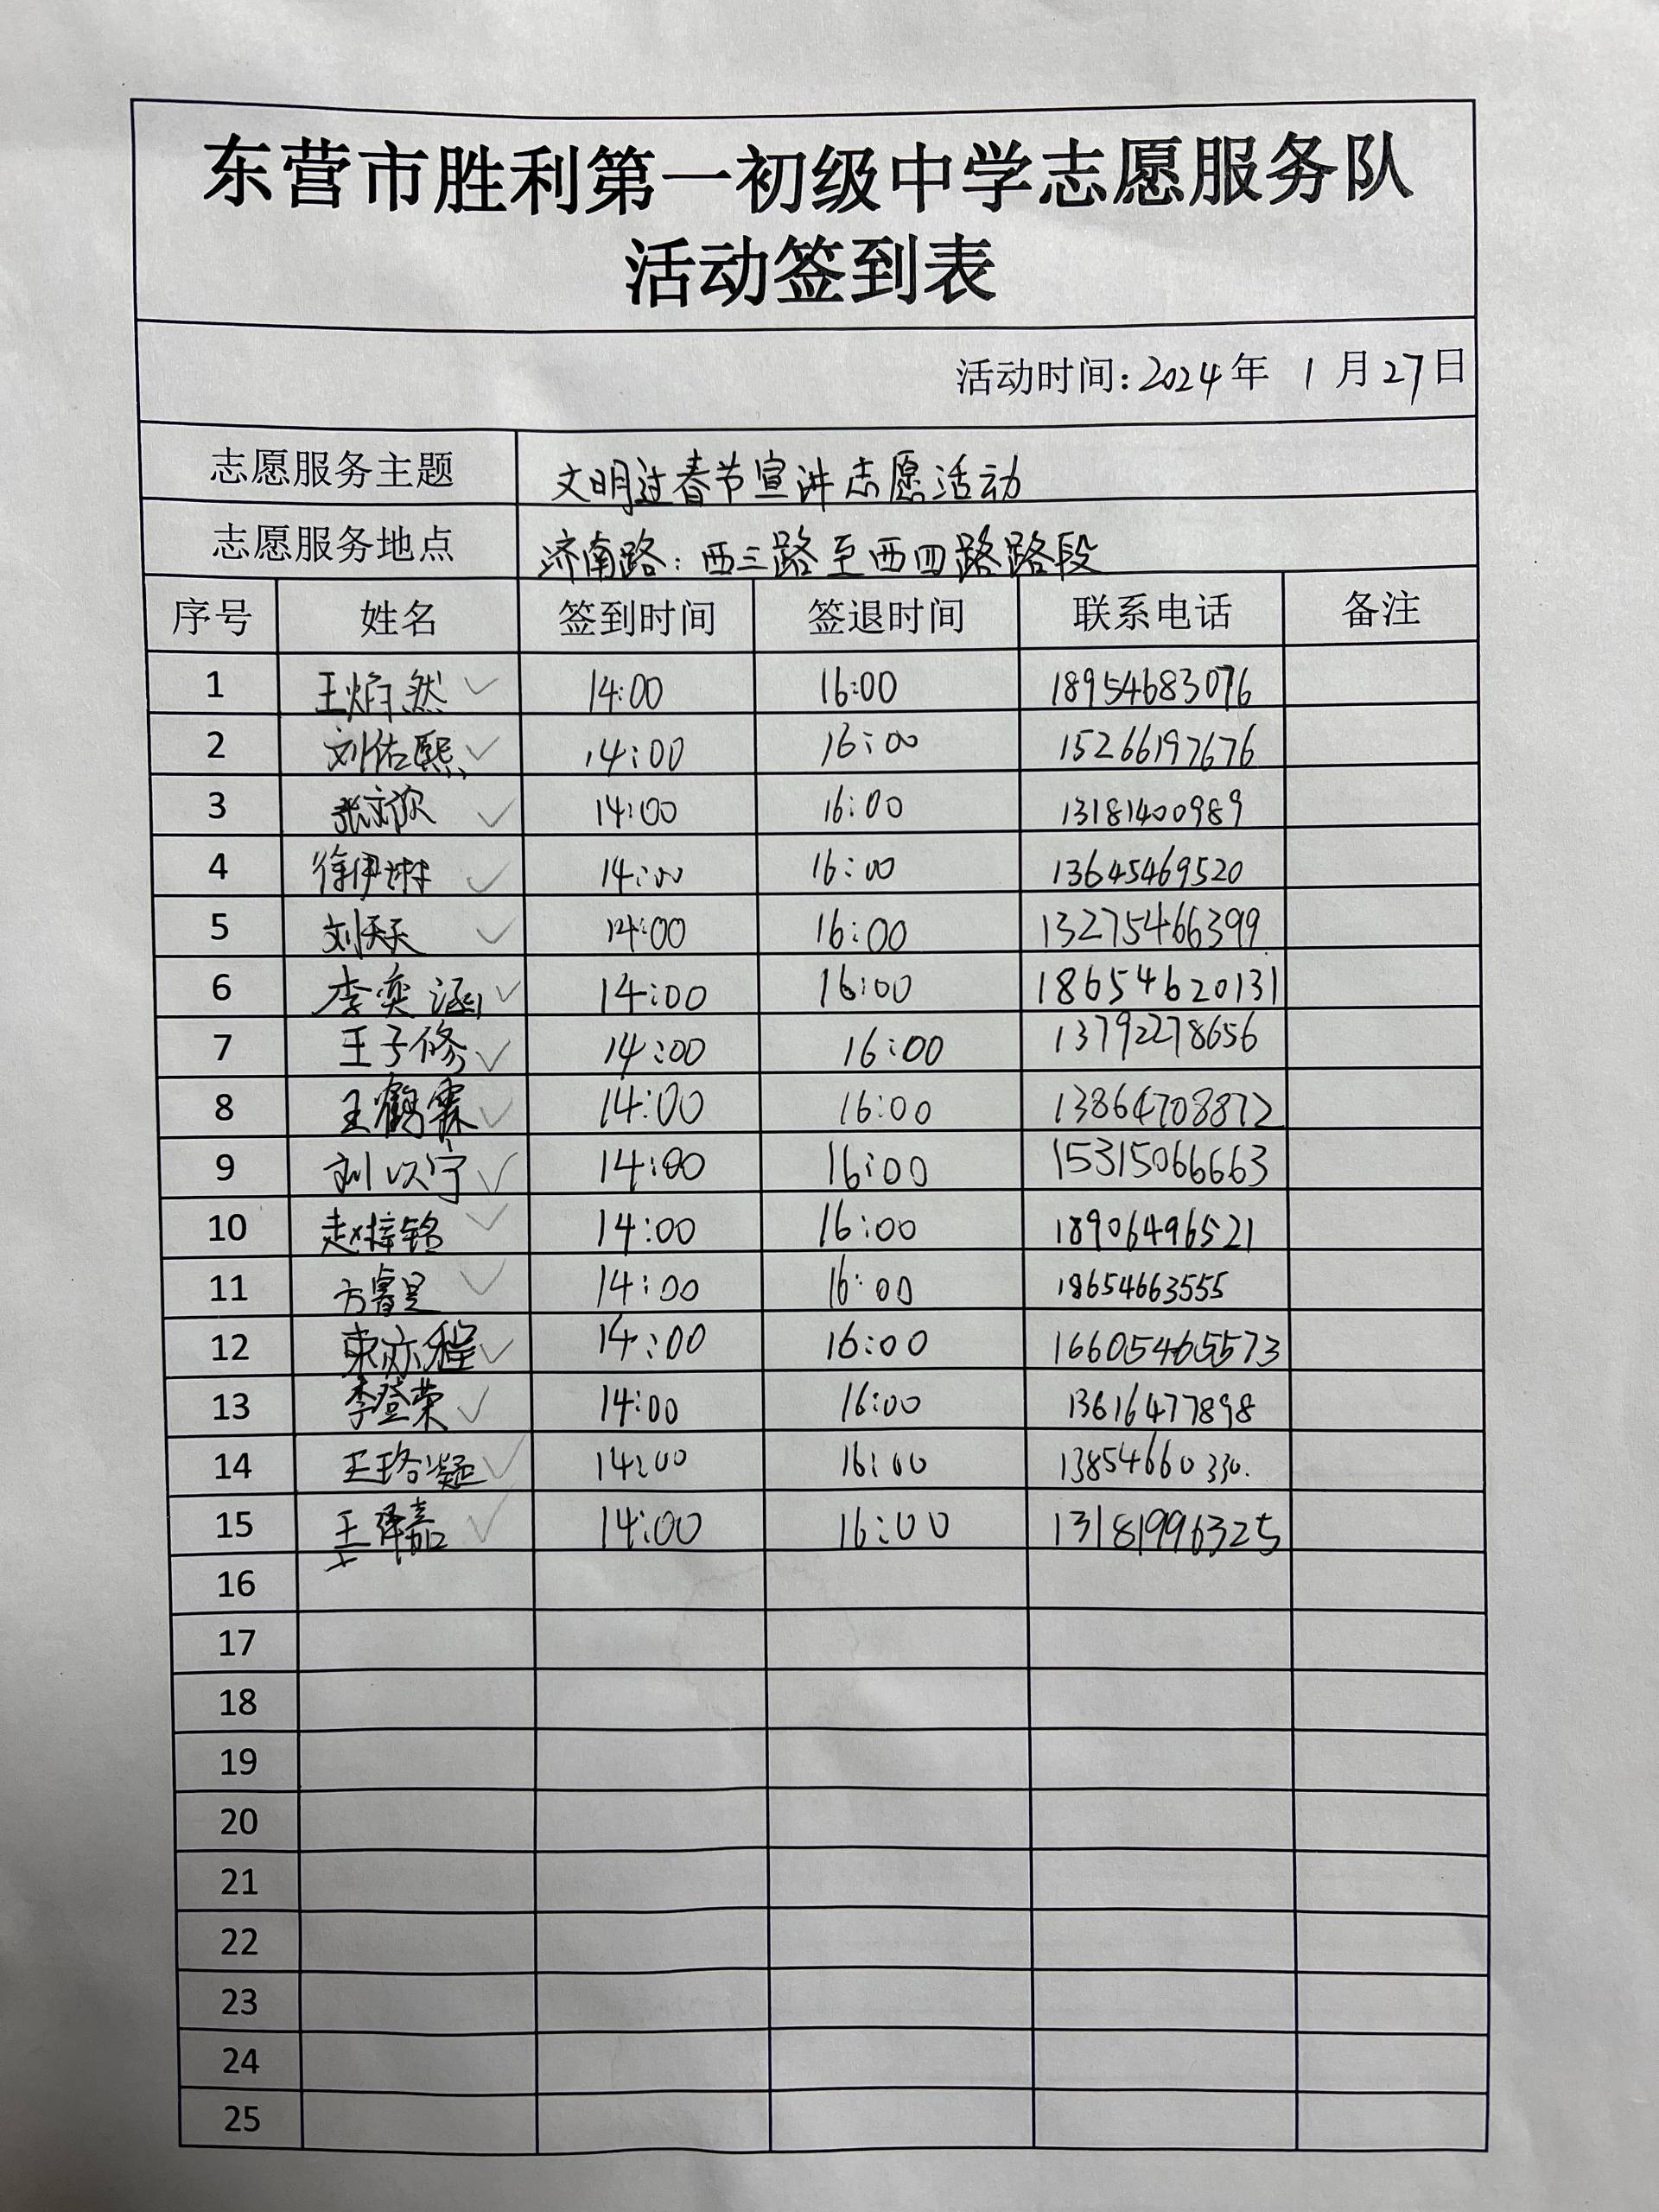 东营市胜利第一初级中学志愿服务队
活动签到表
活动时间:2024年 1月27日
志愿服务主题 文明过春节宣讲志愿活动
志愿服务地点 济南路:西三路至西四路路段
序号 姓名 签到时间 签退时间 联系电话 备注
1 王焰然 14:00 16:00 18954683076
2 刘佑熙 14:00 16:00 15266197676
3 14:00 16:00 13181400989
4 徐伊琳 14:00 16:00 13645469520
5 刘天天 14:00 16:00 13275466399
6 李奕涵 14:00 16:00 18654620131
7 王子修 14:00 16:00 13792278656
8 王鹤霖 14:00 16:00 13864708872
9 刘以宁 14:00 16:00 15315066663
10 赵梓铭 14:00 16:00 18906496521
11 方睿昰 14:00 16:00 18654663555
12 束亦程 14:00 16:00 16605465573
13 李登荣 14:00 16:00 13616477898
14 王珞凝 14:00 16:00 13854660330.
15 王泽嘉 14:00 16:00 13181996325
16
17
18
19
20
21
22
23
24
25